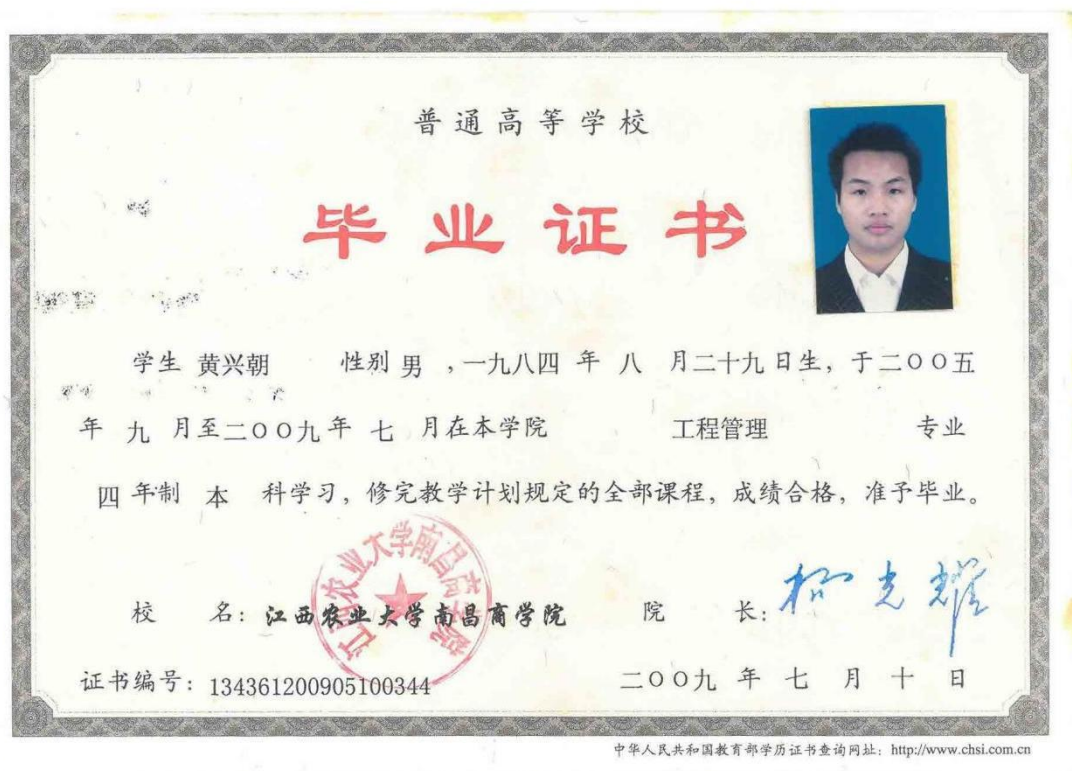 普通高等学校
毕业证书
学生 黄兴朝 性别 男 ,一九八四 年 八 月二十九日生，于二00五
年 九 月至二00九年 七 月在本学院 工程管理 专业
四 年制 本 科学习，修完教学计划规定的全部课程，成绩合格，准予毕业。
江西农业大学南昌商学院
校 名：江西农业大学南昌商学院 院 长：
证书编号：134361200905100344 二00九 年 七 月 十 日
中华人民共和国教育部学历证书查询网址：http://www.chsi.com.cn